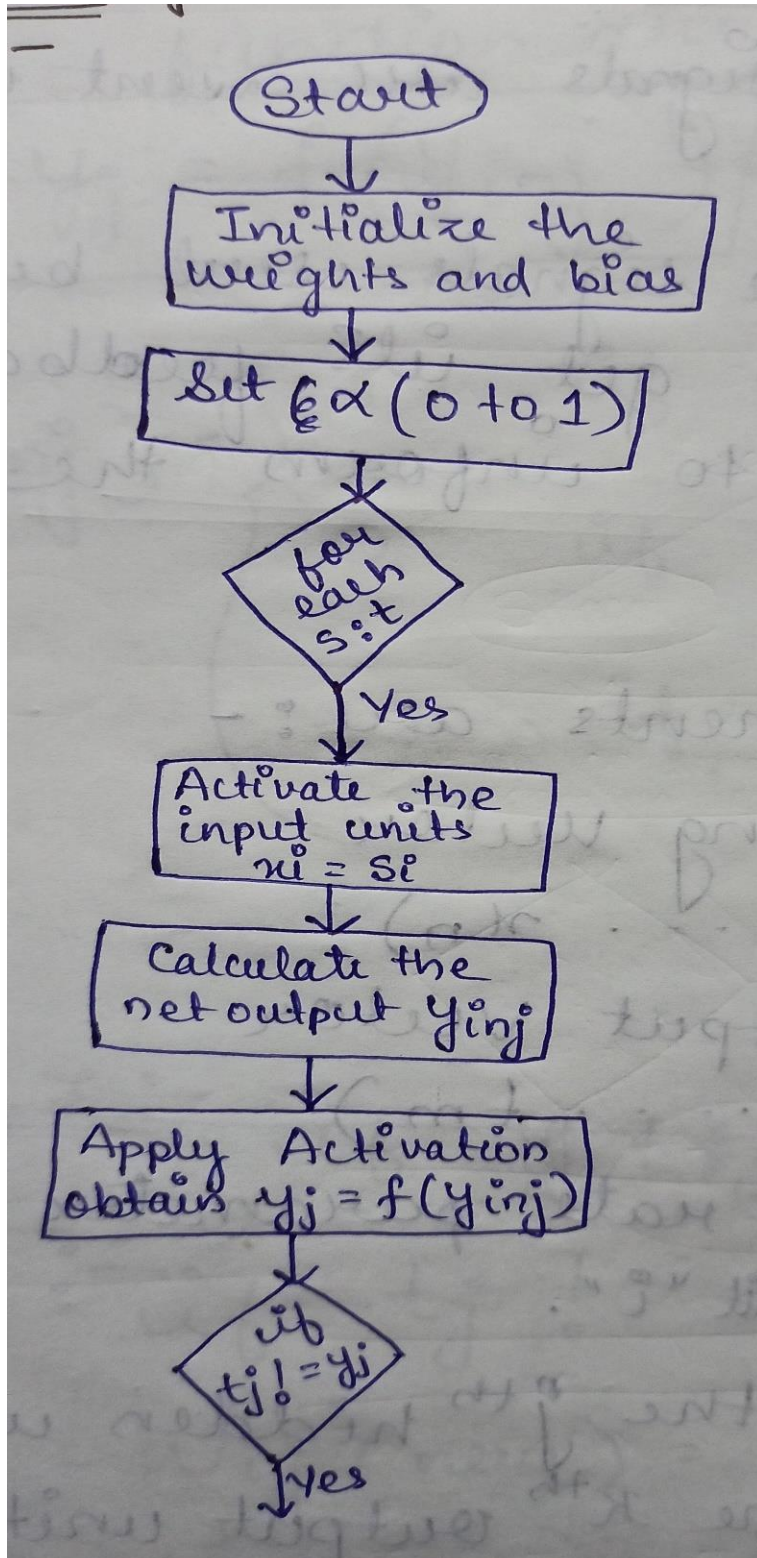 Start
Initialize the
weights and bias
Set α (0 to 1)
for
each
s:t
Yes
Activate the
input units
xi = si
Calculate the
net output yinj
Apply Activation
obtain yj = f(yinj)
if
tj != yj
Yes